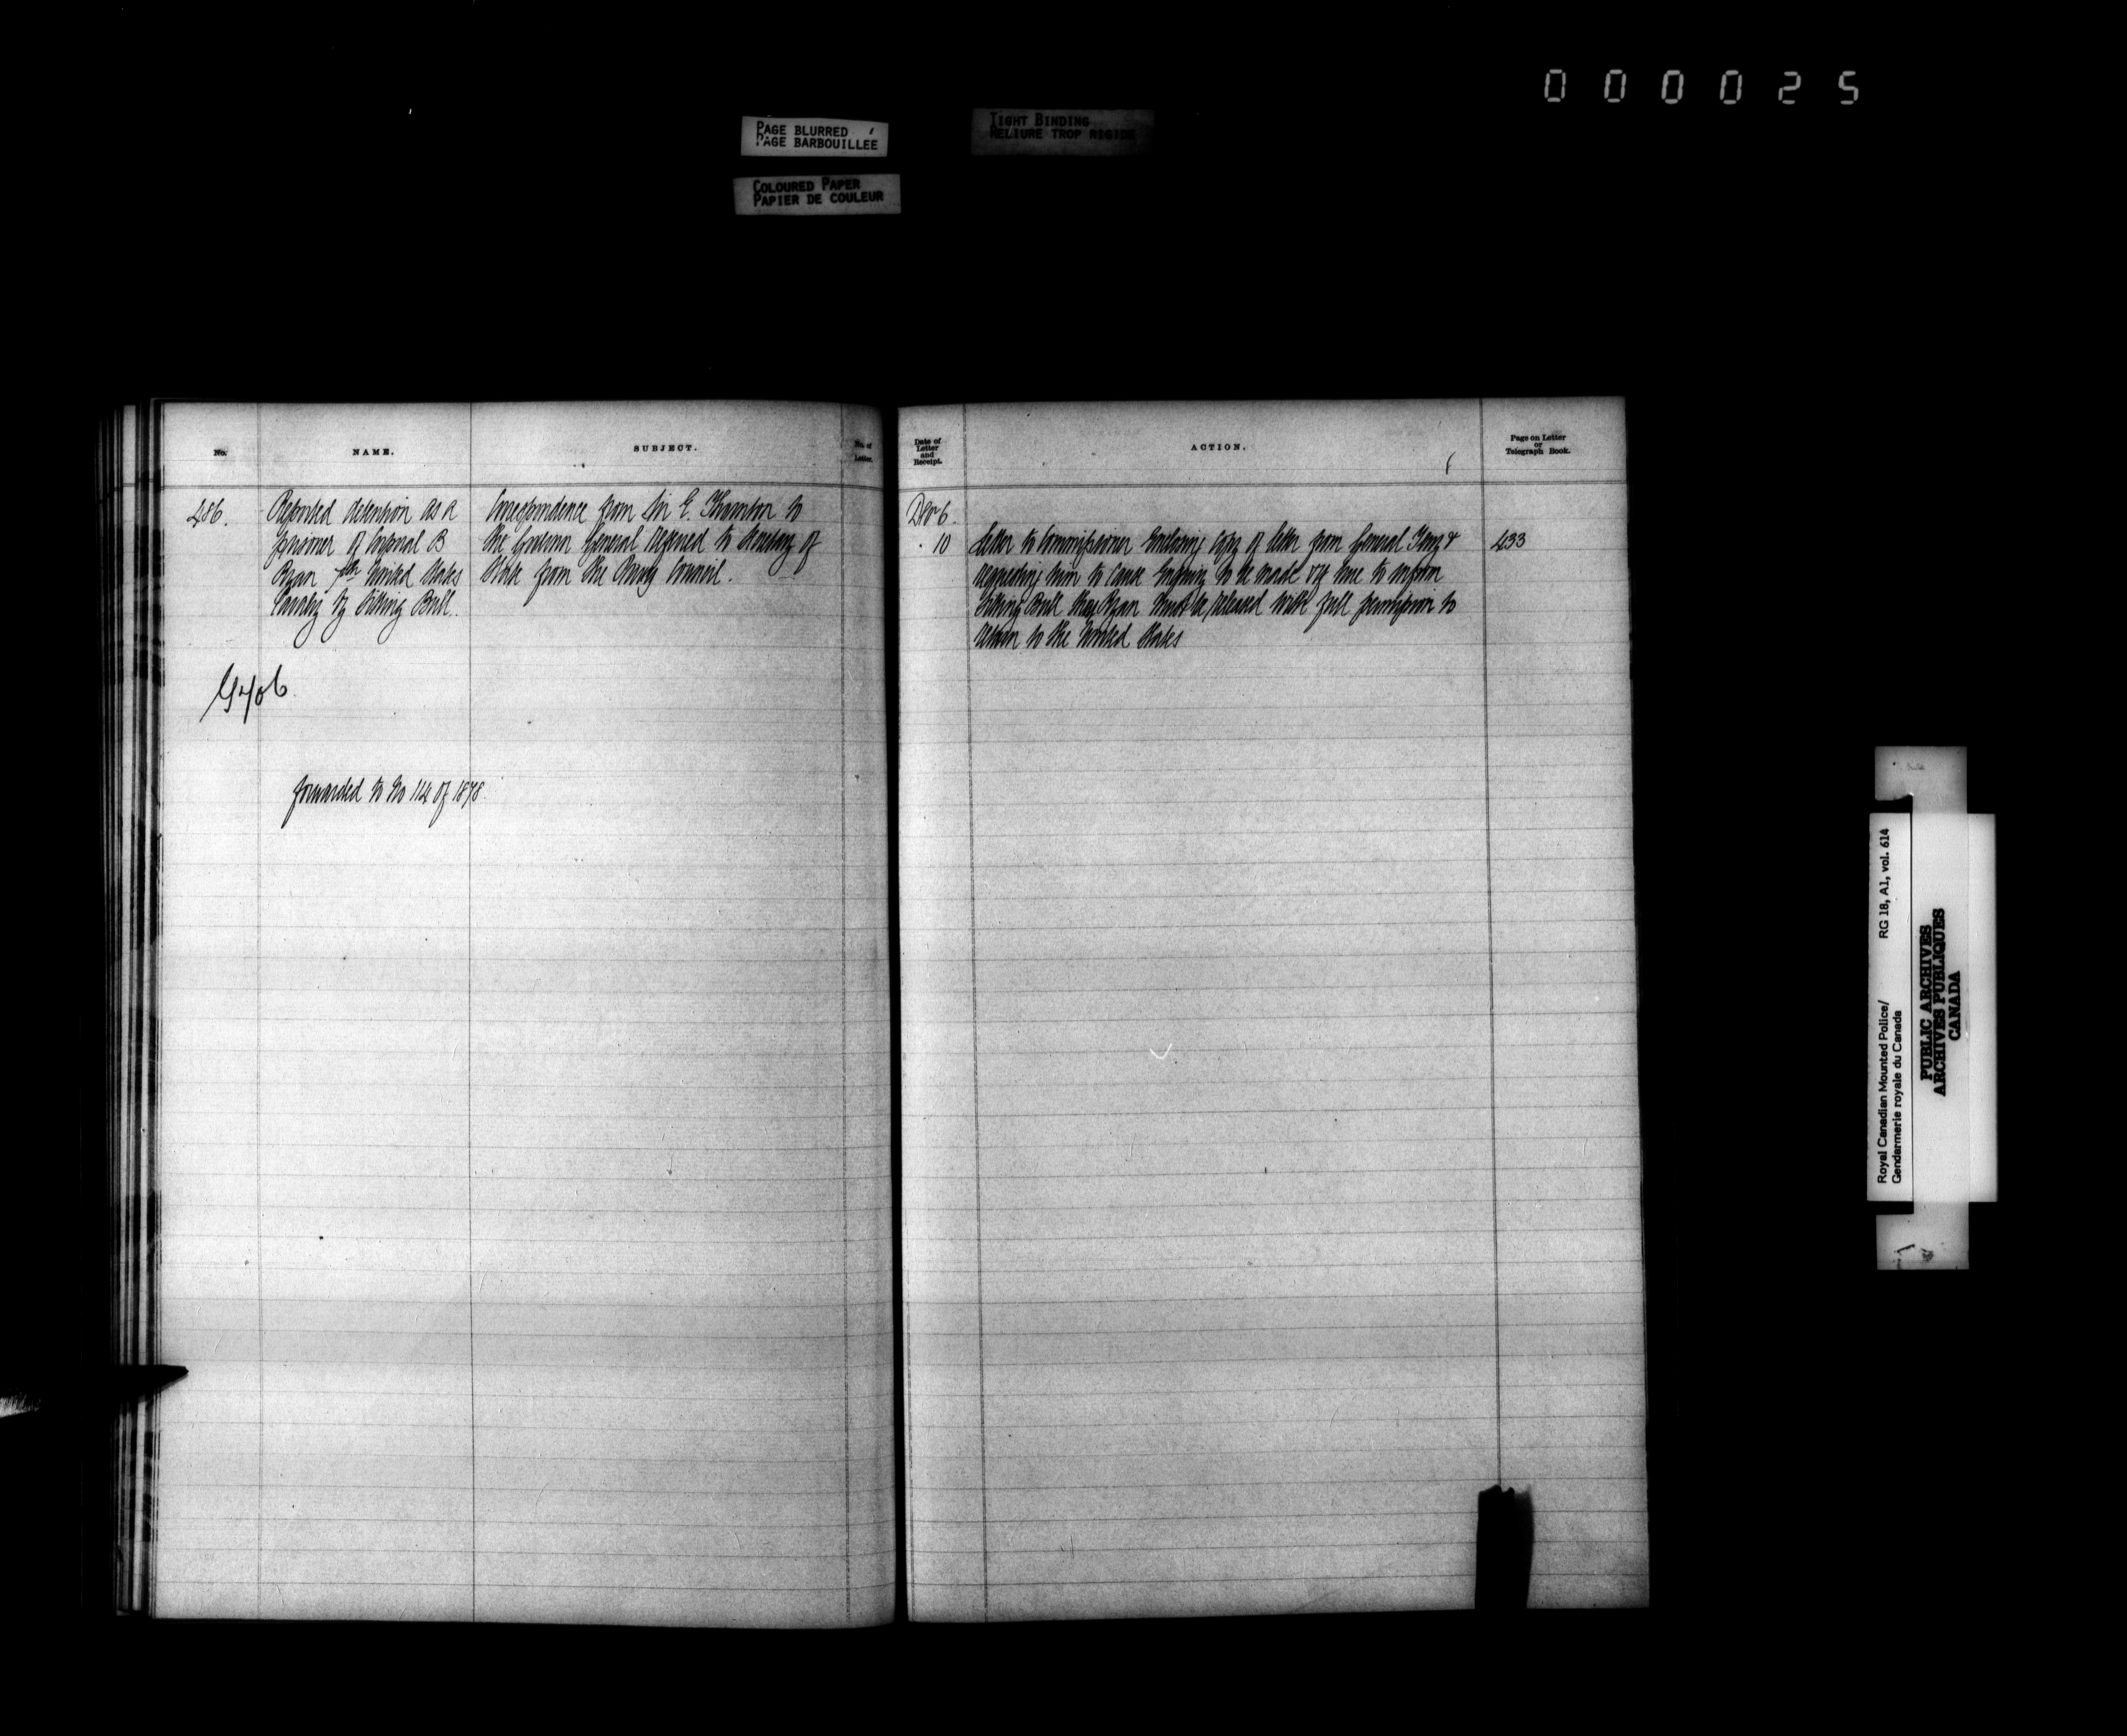 000025
PAGE BLURRED
PAGE BARBOUILLEE
TIGHT BINDING
RELIURE TROP RIGIDE
COLOURED PAPER
PAPIER DE COULEUR
No.
NAME.
SUBJECT.
No. of
Letter.
486.
Reported detention as a
prisoner of Corporal B
Ryan 7th United States
Cavalry by Sitting Bull.
Correspondence from Sir E. Thornton to
the Governor General Referred to Secretary of
State from the Privy Council.
forwarded to No 114 of 1878.
Date of
Letter
and
Receipt.
ACTION.
Page on Letter
or
Telegraph Book.
6.
10
Letter to Commissioner Enclosing Copy of letter from General &
requesting him to cause Enquiry to be made & if true to inform
Sitting Bull that Ryan must be released with full permission to
return to the United States
433
Royal Canadian Mounted Police/
Gendarmerie royale du Canada
RG 18, A1, vol. 614
PUBLIC ARCHIVES
ARCHIVES PUBLIQUES
CANADA